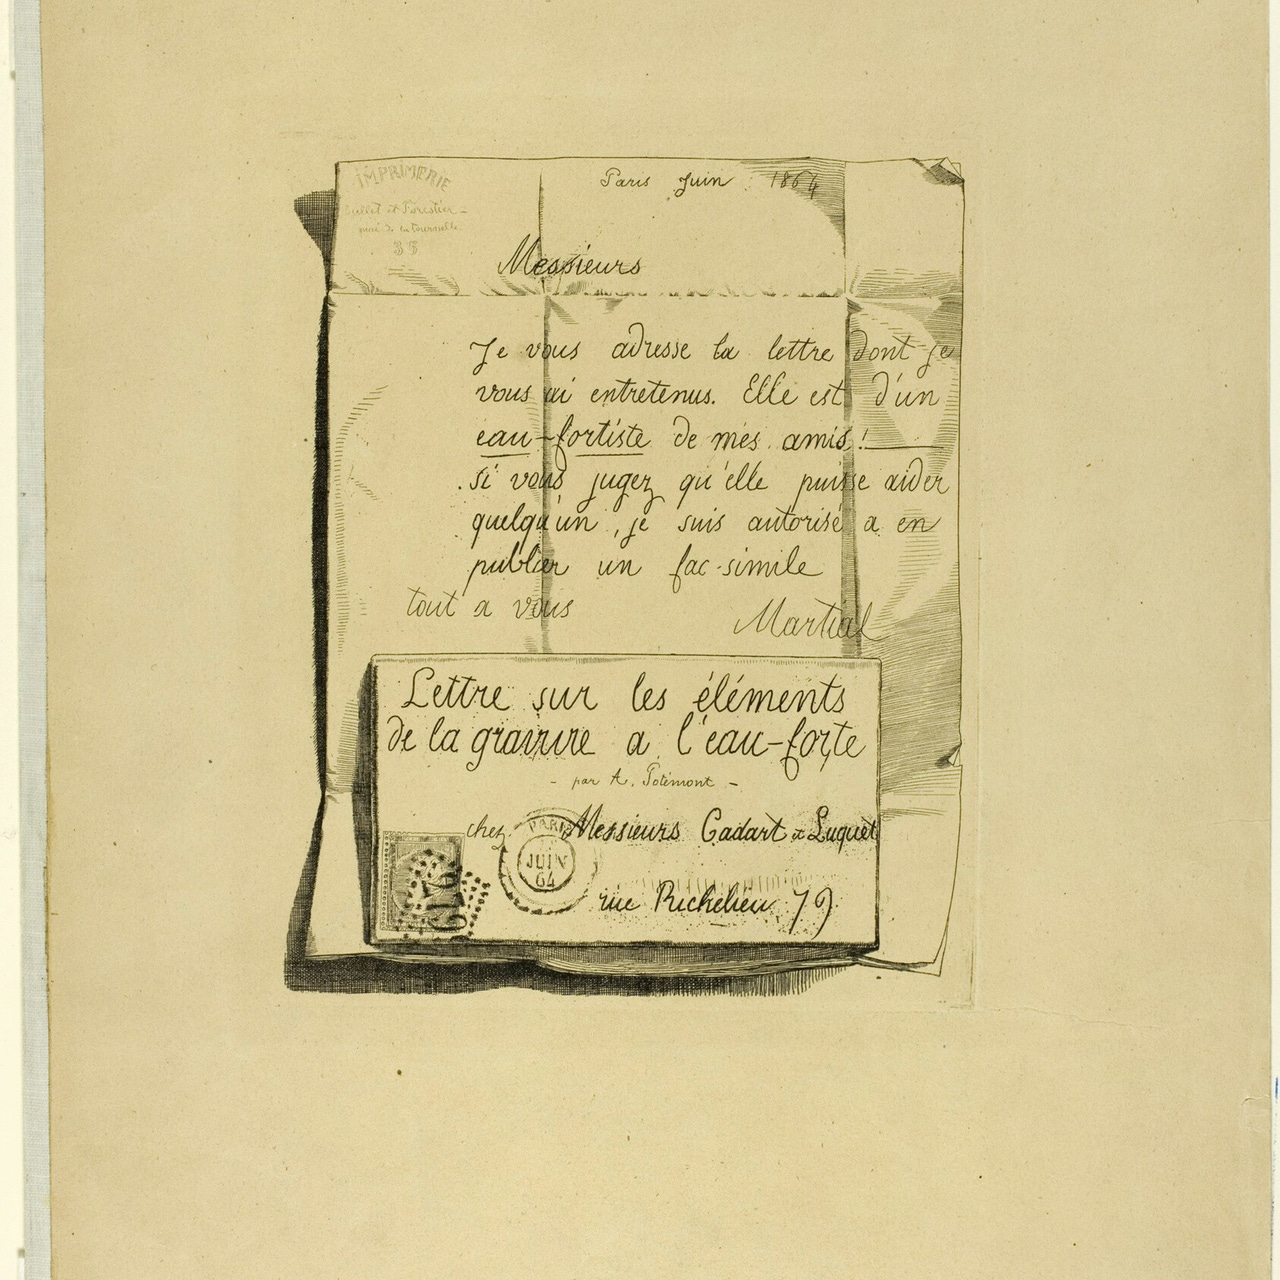 IMPRIMERIE
35
Paris Juin 1864
Messieurs
Je vous adresse la lettre dont je
vous ai entretenus. Elle est d'un
eau-fortiste de mes amis!
si vous jugez qu'elle puisse aider
quelqu'un, je suis autorisé a en
publier un fac-simile
tout a vous
Martial
Lettre sur les éléments
de la gravure a l'eau-forte
- par A. Potémont -
chez Messieurs Cadart et Luquet
PARIS
JUIN
64
rue Richelieu 79